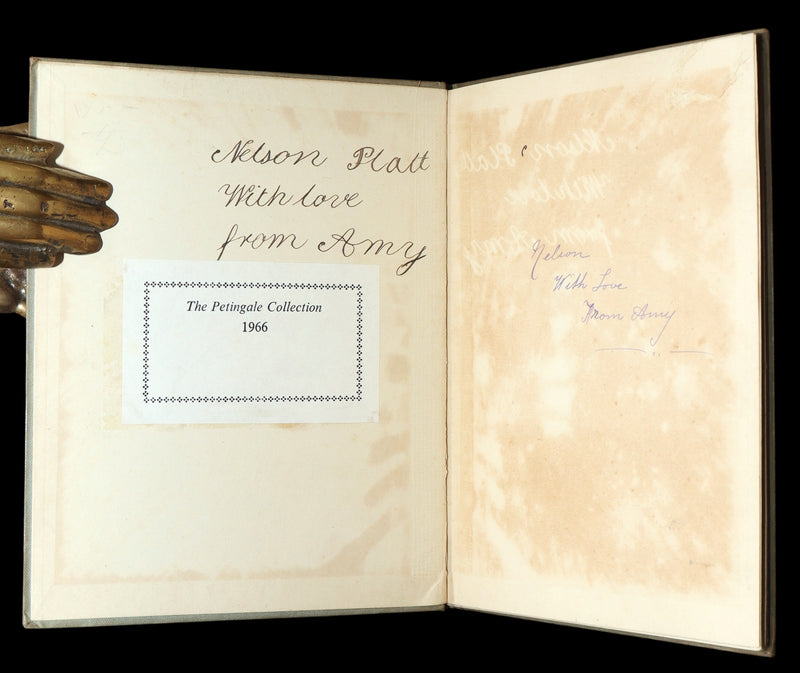 Nelson Platt
With love
from Amy
The Petingale Collection
1966
Nelson
With Love
From Amy